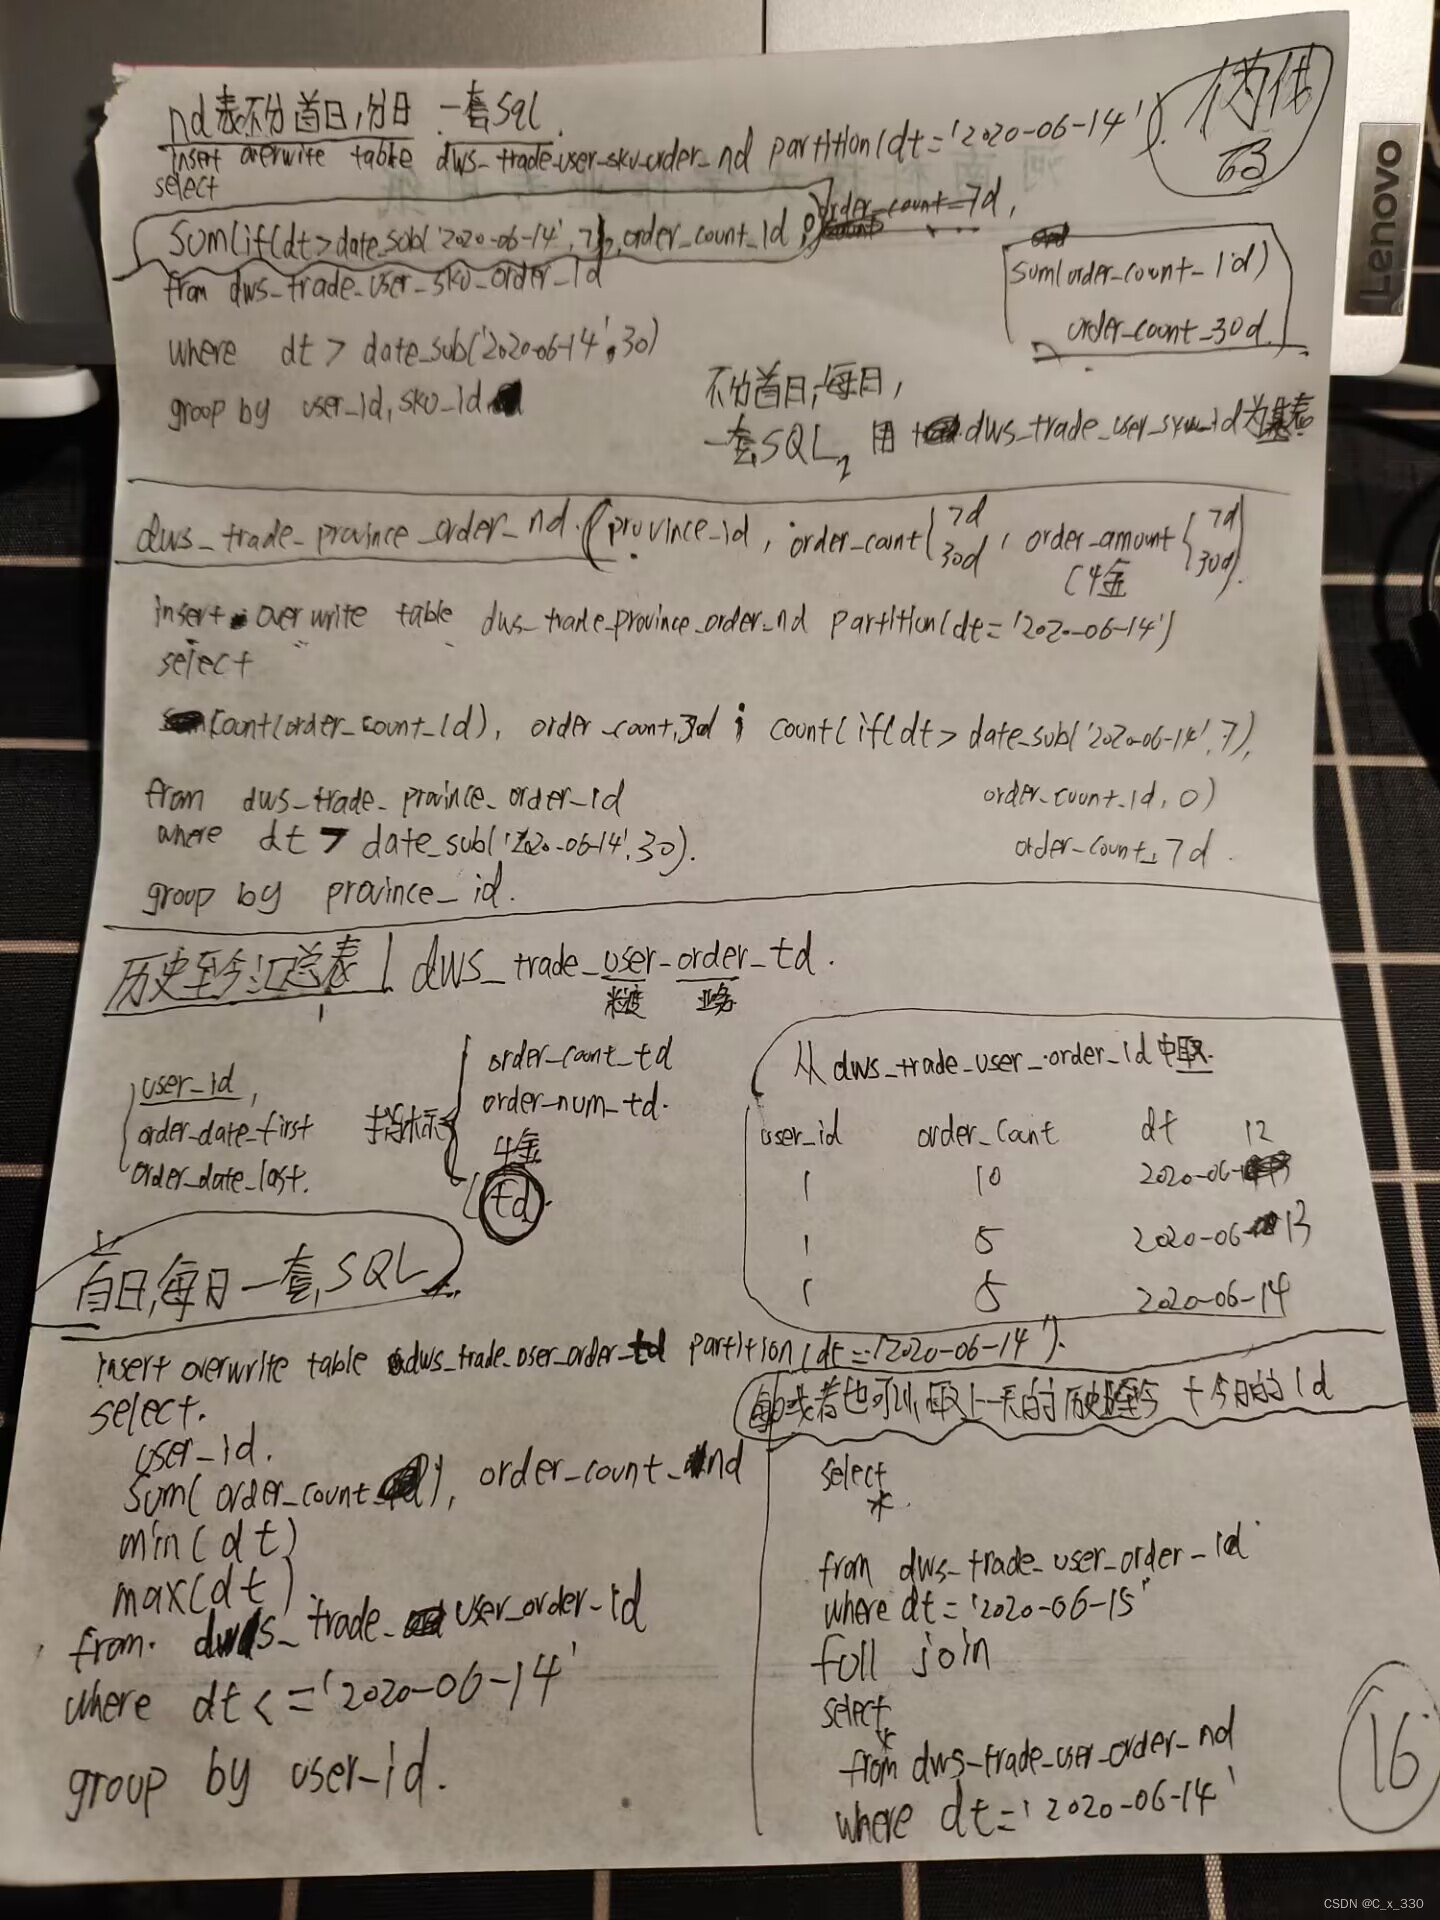 nd表不分首日,分日 一套sql.
伪代码
insert overwrite table dws_trade_user_sku_order_nd partition(dt='2020-06-14').
select
sum(if(dt>date_sub('2020-06-14',7),order_count_1d,0)
order_count_7d,
sum(order_count_1d)
order_count_30d.
from dws_trade_user_sku_order_1d
where dt > date_sub('2020-06-14',30)
group by user_id,sku_id
不分首日,每日,
一套SQL, 用 dws_trade_user_sku_1d为基表
dws_trade_province_order_nd.(province_id, order_count{7d 30d, order_amount{7d 30d).
(4金
insert overwrite table dws_trade_province_order_nd partition(dt='2020-06-14')
select
count(order_count_1d), order_count_30d ; count(if(dt> date_sub('2020-06-14',7),
order_count_1d, 0)
order_count_7d.
from dws_trade_province_order_1d
where dt > date_sub('2020-06-14',30).
group by province_id.
历史至今汇总表 | dws_trade_user_order_td.
粒度 业务
user_id,
order_date_first
order_date_last.
order_count_td
order_num_td.
4金
td.
从dws_trade_user_order_1d中取.
user_id order_count dt
1 10 2020-06-12
1 5 2020-06-13
1 5 2020-06-14
首日,每日一套,SQL
insert overwrite table dws_trade_user_order_td partition(dt='2020-06-14').
select.
user_id.
sum(order_count), order_count_nd
min(dt)
max(dt)
from dws_trade_user_order_1d
where dt <='2020-06-14'
group by user_id.
或者也可以,取上一天的历史至今 + 今日的1d
select
*.
from dws_trade_user_order_1d
where dt='2020-06-15'
full join
select
*
from dws_trade_user_order_nd
where dt='2020-06-14'
16
Lenovo
CSDN @C_x_330